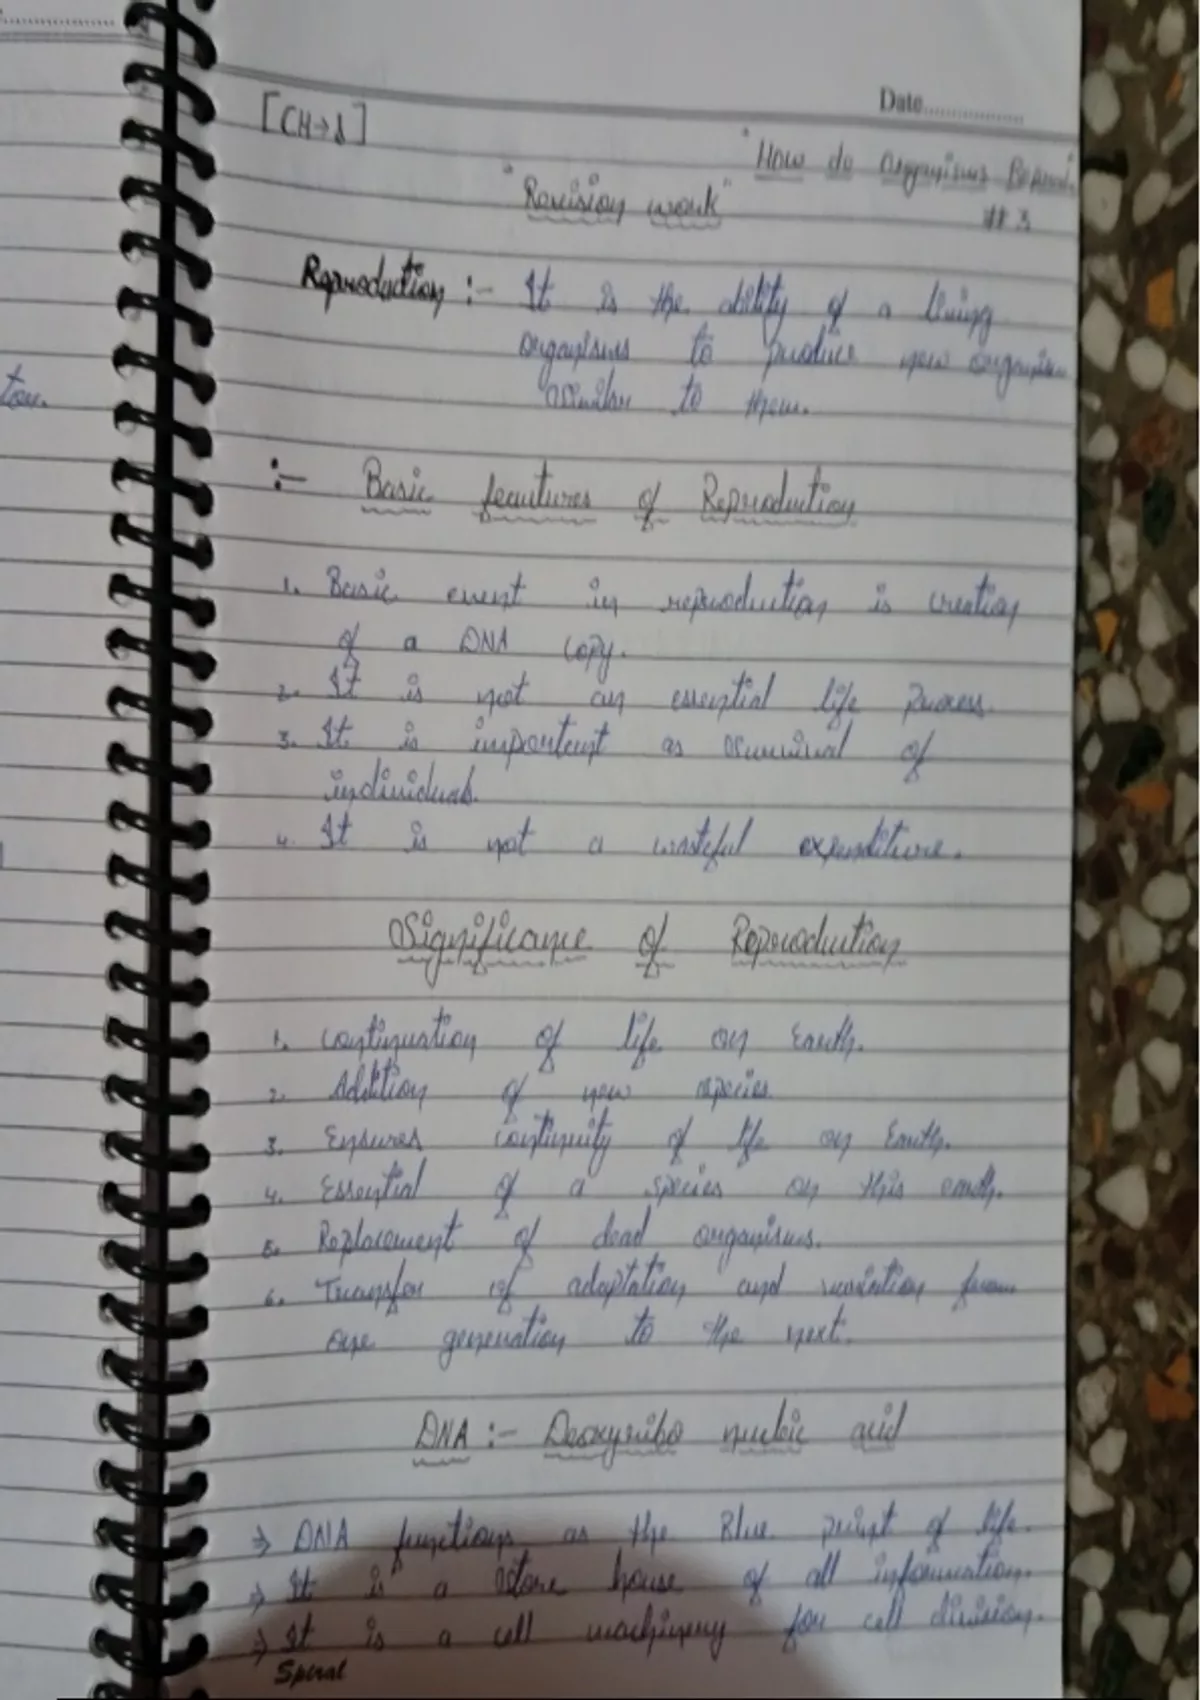 Date..............
[CH→8]
"How do organisms Reprod.
"Revision work"
# 3
Reproduction :- It is the ability of a living
organisms to produce new organism
similar to them.
:- Basic feautures of Reproduction
1. Basic event in reproduction is creation
of a DNA copy.
2. It is not an essential life process.
3. It is important as survival of
individuals.
4. It is not a wasteful expenditure.
Significance of Reproduction
1. Continuation of life on Earth.
2. Addition of new species.
3. Ensures continuity of life on Earth.
4. Essential of a species on this earth.
5. Replacement of dead organisms.
6. Transfer of adaptation and variation from
one generation to the next.
DNA :- Deoxyribo nucleic acid
→ DNA functions as the Blue print of life.
→ It is a store house of all information.
→ It is a cell machinery for cell division.
Spiral